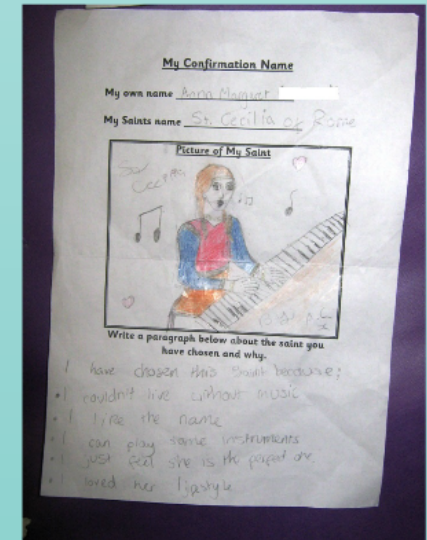 My Confirmation Name
My own name Anna Margaret
My Saints name St. Cecilia of Rome
Picture of My Saint
Write a paragraph below about the saint you
have chosen and why.
I have chosen this Saint because;
• I couldn't live without music
• I like the name
• I can play some instruments
• I just feel she is the perfect one
• I loved her lifestyle